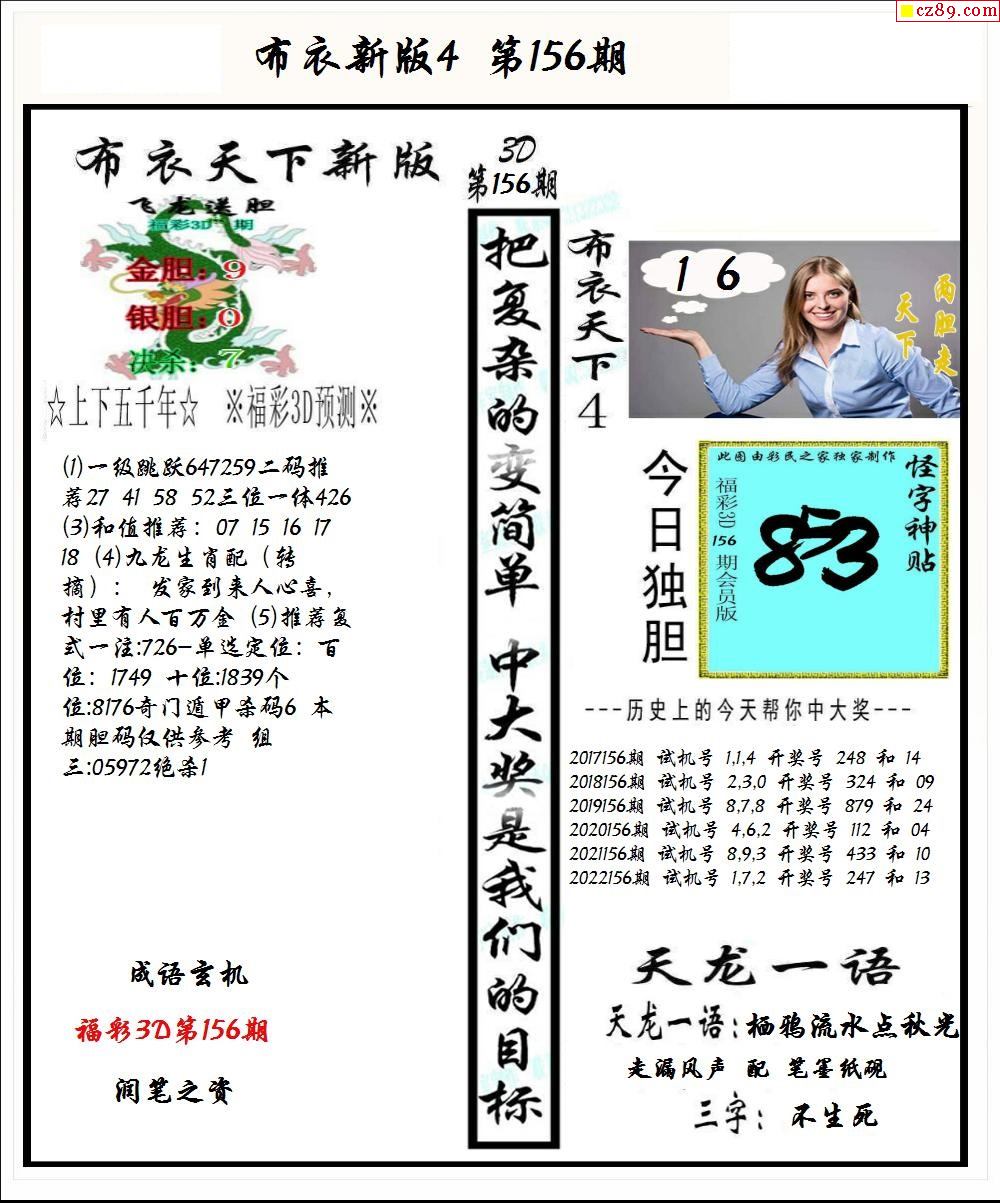 cz89.com
布衣新版4 第156期
布衣天下新版
飞龙送胆
福彩3D 期
金胆：9
银胆：0
决杀：7
☆上下五千年☆ ※福彩3D预测※
(1)一级跳跃647259二码推
荐27 41 58 52三位一体426
(3)和值推荐：07 15 16 17
18 (4)九龙生肖配（转
摘）： 发家到来人心喜，
村里有人百万金 (5)推荐复
式一注:726-单选定位：百
位：1749 十位:1839个
位:8176奇门遁甲杀码6 本
期胆码仅供参考 组
三:05972绝杀1
成语玄机
福彩3D第156期
润笔之资
3D
第156期
把复杂的变简单 中大奖是我们的目标
布衣天下4
1 6
两胆走
天下
今日独胆
此图由彩民之家独家制作
怪字神贴
福彩3D 156 期会员版
853
---历史上的今天帮你中大奖---
2017156期 试机号 1,1,4 开奖号 248 和 14
2018156期 试机号 2,3,0 开奖号 324 和 09
2019156期 试机号 8,7,8 开奖号 879 和 24
2020156期 试机号 4,6,2 开奖号 112 和 04
2021156期 试机号 8,9,3 开奖号 433 和 10
2022156期 试机号 1,7,2 开奖号 247 和 13
天龙一语
天龙一语：栖鸦流水点秋光
走漏风声 配 笔墨纸砚
三字： 不生死